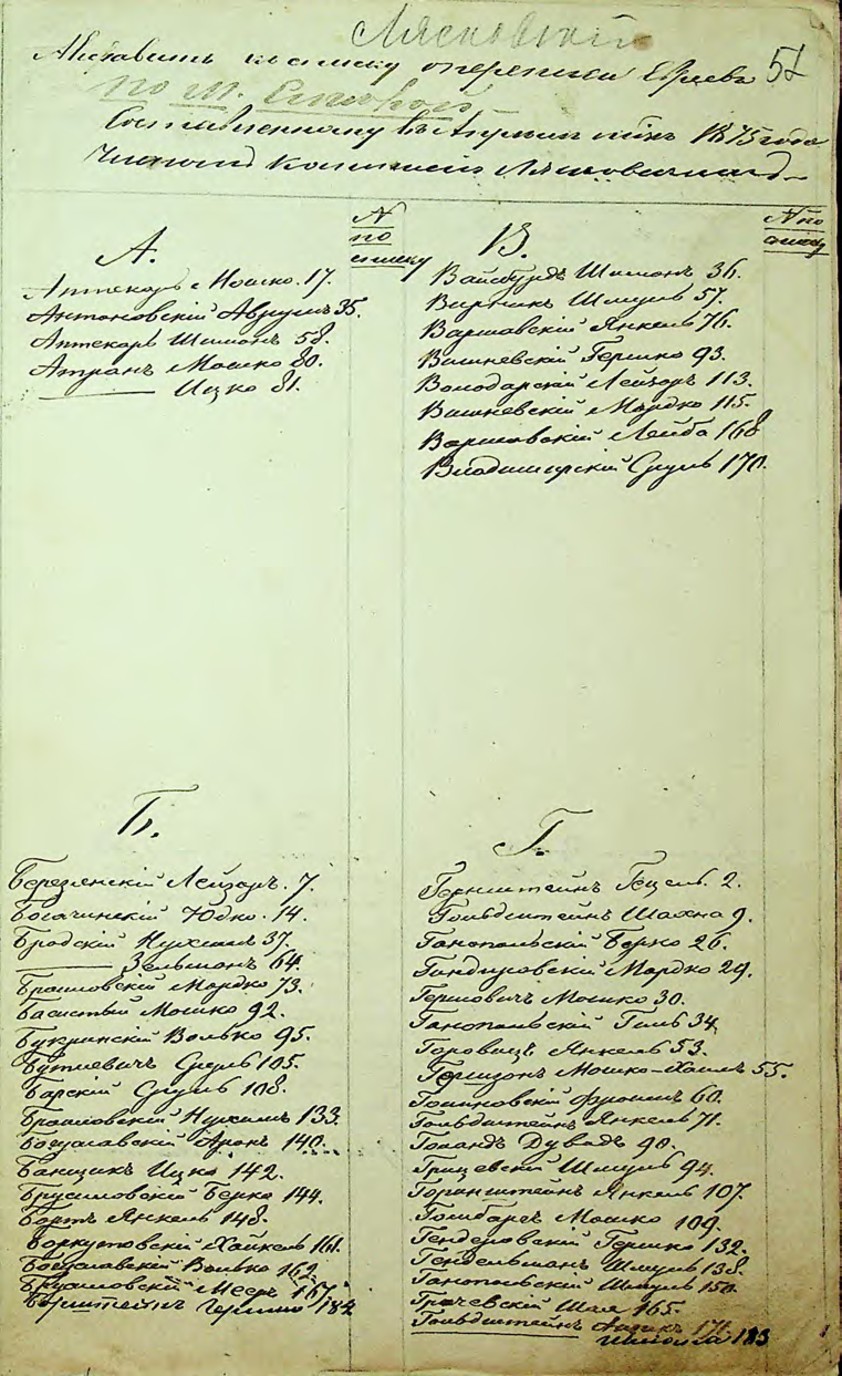 Лясковскій
Алфавитъ къ списку о переписи Евреевъ 51
по м.
Составленному въ Апрѣлѣ мѣс. 1875 года
Коммисіи
А.
N
по
списку
Аптекарь Мошко. 17.
Антоновскій Аврумъ 35.
Аптекарь Шимонъ 58.
Атранъ Мошко 80.
——— Ицко 81.
В.
N по
списку
Вайсбурдъ Шимонъ 36.
Вирникъ Шмуль 57.
Варшавскій Янкель 76.
Вишневскій Гершко 93.
Володарскій Лейзоръ 113.
Вишневскій Мордко 115.
Варшавскій Лейба 168
Владимірскій Сруль 170.
Б.
Березенскій Лейзоръ. 7.
Богачинскій Юдко. 14.
Бродскій Нухимъ 37.
——— Зельманъ 64.
Браиловскій Мордко 73.
Басистый Мошко 92.
Букринскій Волько 95.
Бутиевичъ Сруль 105.
Барскій Сруль 108.
Браиловскій Нухимъ 133.
Богуславскій Аронъ 140.
Банщикъ Ицко 142.
Брусиловскій Берко 144.
Бортъ Янкель 148.
Боркутовскій Хайкель 161.
Богуславскій Волько 162.
Брусиловскій Мееръ 167.
Борштейнъ Гершко 182
Г.
Горнштейнъ Гецель. 2.
Гольдштейнъ Шахна 9.
Ганопольскій Берко 26.
Гандировскій Мордко 29.
Гершовичъ Мошко 30.
Ганопольскій Гиль 34
Горовицъ Янкель 53.
Гершзонъ Мошко-Хаимъ 55.
Голиковскій Фроимъ 60.
Гольдштейнъ Янкель 71.
Голандъ Дувидъ 90.
Грицевскій Шмуль 94.
Горинштейнъ Янкель 107.
Голибаръ Мошко 109.
Генделовскій Гершко 132.
Гендельманъ Шмуль 138.
Ганопольскій Шмуль 150.
Грачевскій Шая 165.
Гольдштейнъ Айзикъ 171.
——— 183